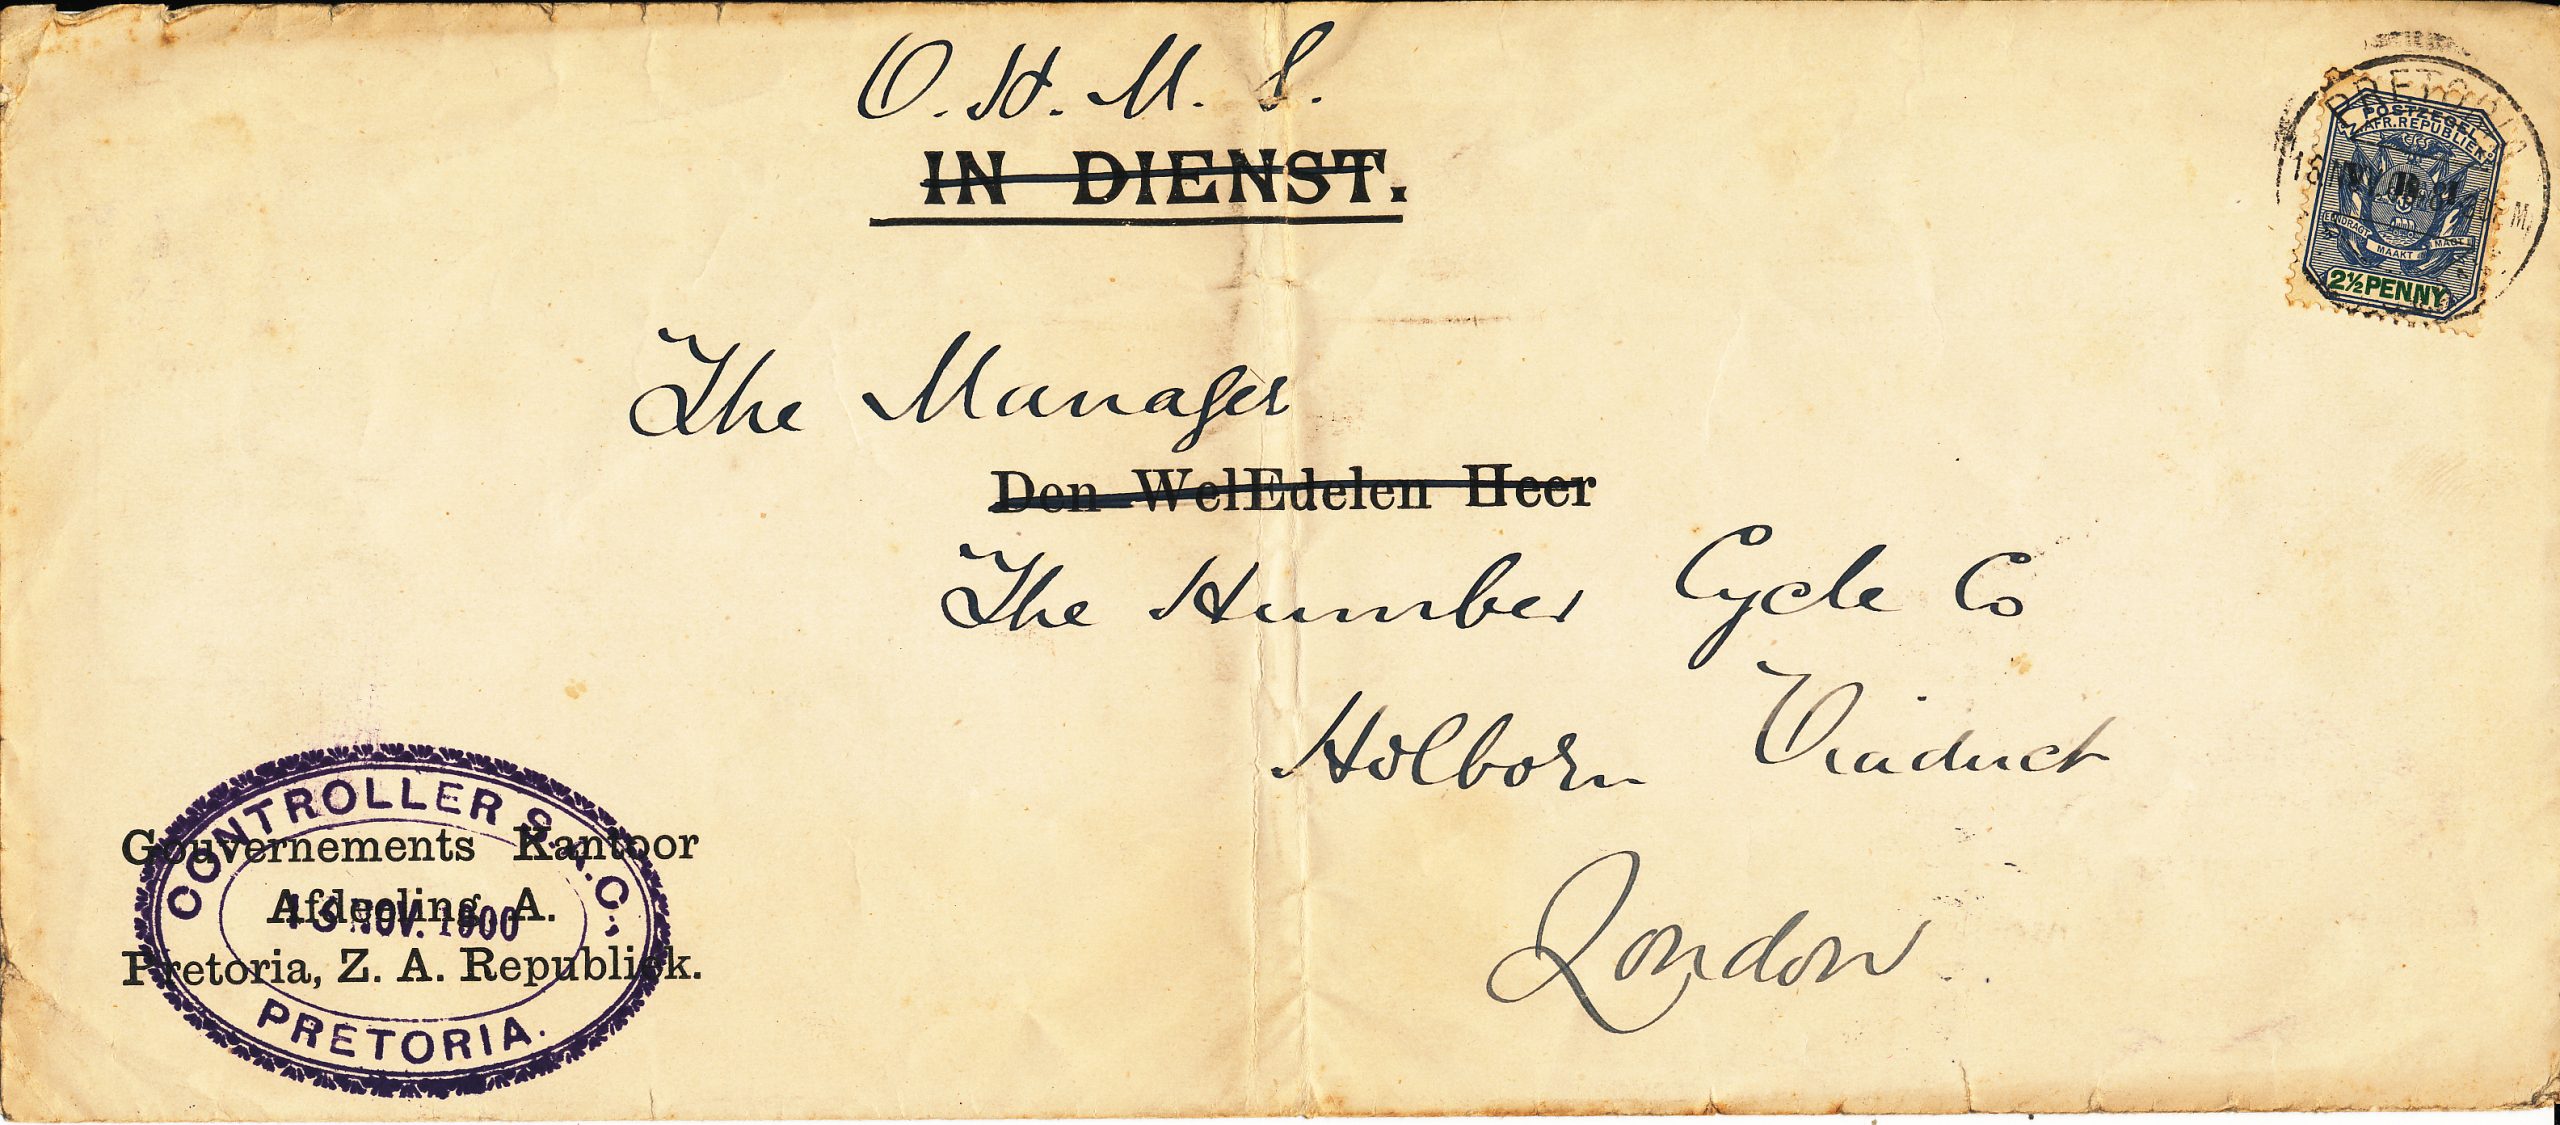 O. H. M. S.
IN DIENST.
The Manager
Den WelEdelen Heer
The Humber Cycle Co
Holborn Viaduct
London.
Gouvernements Kantoor
Afdeeling A.
Pretoria, Z. A. Republiek.
CONTROLLER S.
NOV. 1900
PRETORIA.
PRETORIA
POSTZEGEL
Z. AFR. REPUBLIEK
EENDRAGT MAAKT MAGT
2½ PENNY